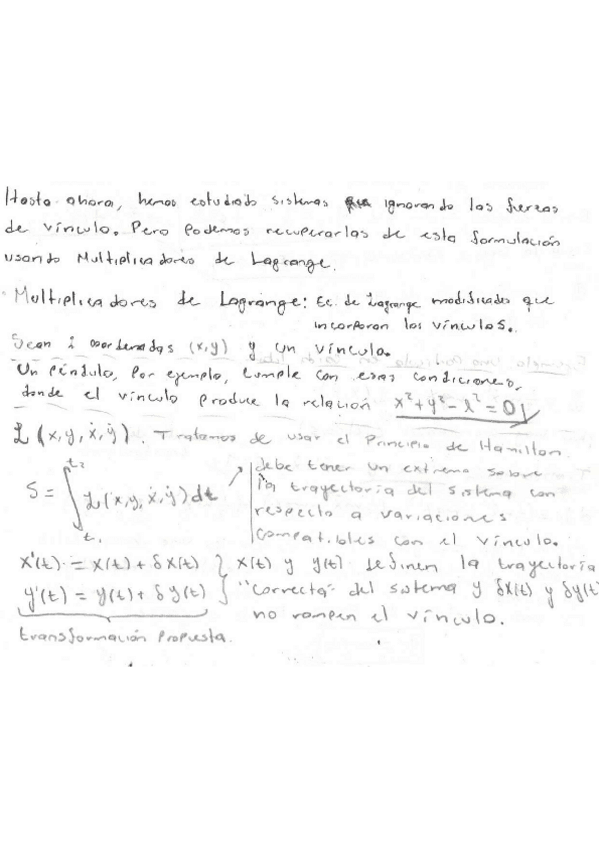 Hasta ahora, hemos estudiado sistemas ignorando las fuerzas
de vínculo. Pero podemos recuperarlas de esta formulación
usando Multiplicadores de Lagrange.
Multiplicadores de Lagrange: Ec. de Lagrange modificadas que
incorporan los vínculos.
Sean 2 coordenadas (x,y) y un vínculo.
Un péndulo, por ejemplo, cumple con esas condiciones,
donde el vínculo produce la relación x² + y² - l² = 0
L (x, y, ẋ, ẏ). Tratamos de usar el Principio de Hamilton.
S = ∫_{t₁}^{t₂} L(x, y, ẋ, ẏ) dt
debe tener un extremo sobre
la trayectoria del sistema con
respecto a variaciones
compatibles con el vínculo.
x'(t) = x(t) + δx(t) } x(t) y y(t) definen la trayectoria
y'(t) = y(t) + δy(t) } "correcta" del sistema y δx(t) y δy(t)
no rompen el vínculo.
transformación propuesta.